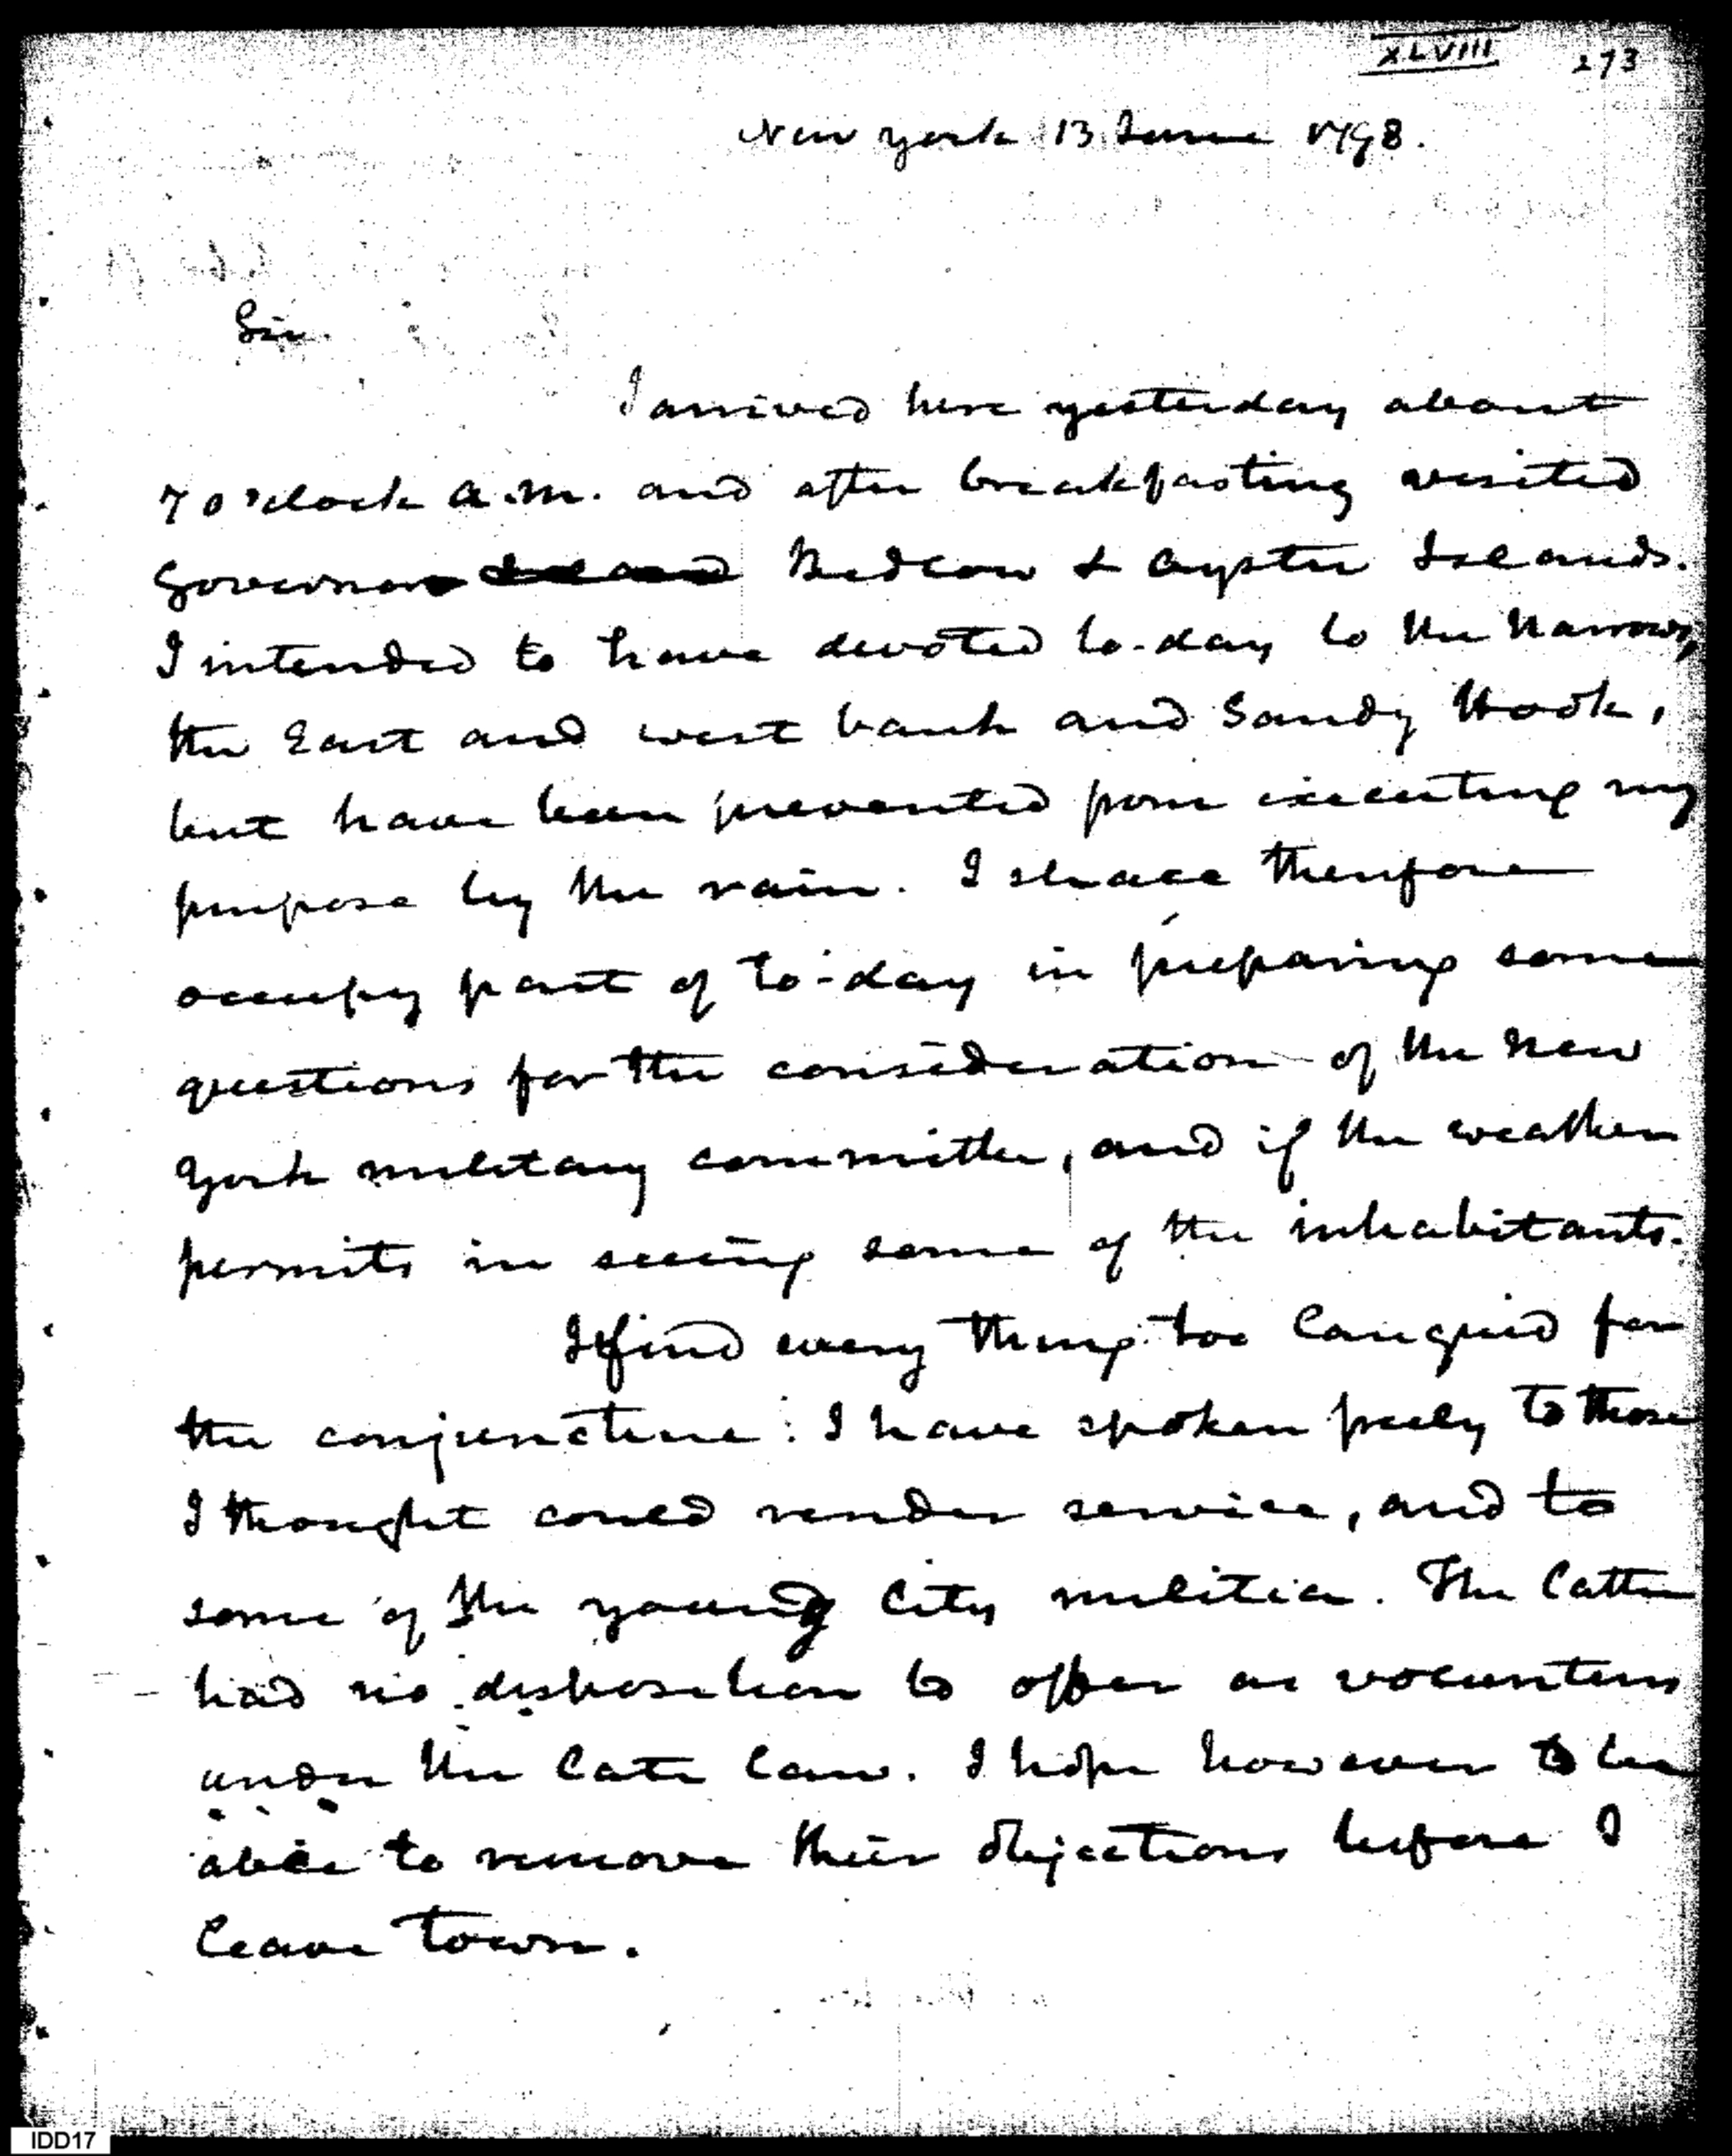 XLVIII 273
New York 13 June 1798.
Sir.
I arrived here yesterday about
7 o'clock a.m. and after breakfasting visited
Governors Bedlow & Oyster Islands.
I intended to have devoted to-day to the Narrows,
the East and west bank and Sandy Hook,
but have been prevented from executing my
purpose by the rain. I shall therefore
occupy part of to-day in preparing some
questions for the consideration of the New
York military committee, and if the weather
permits in seeing some of the inhabitants.
I find every thing too languid for
the conjuncture: I have spoken freely to those
I thought could render service, and to
some of the young City militia. The latter
had no disposition to offer as volunteers
under the late law. I hope however to be
able to remove their objections before I
leave town.
IDD17